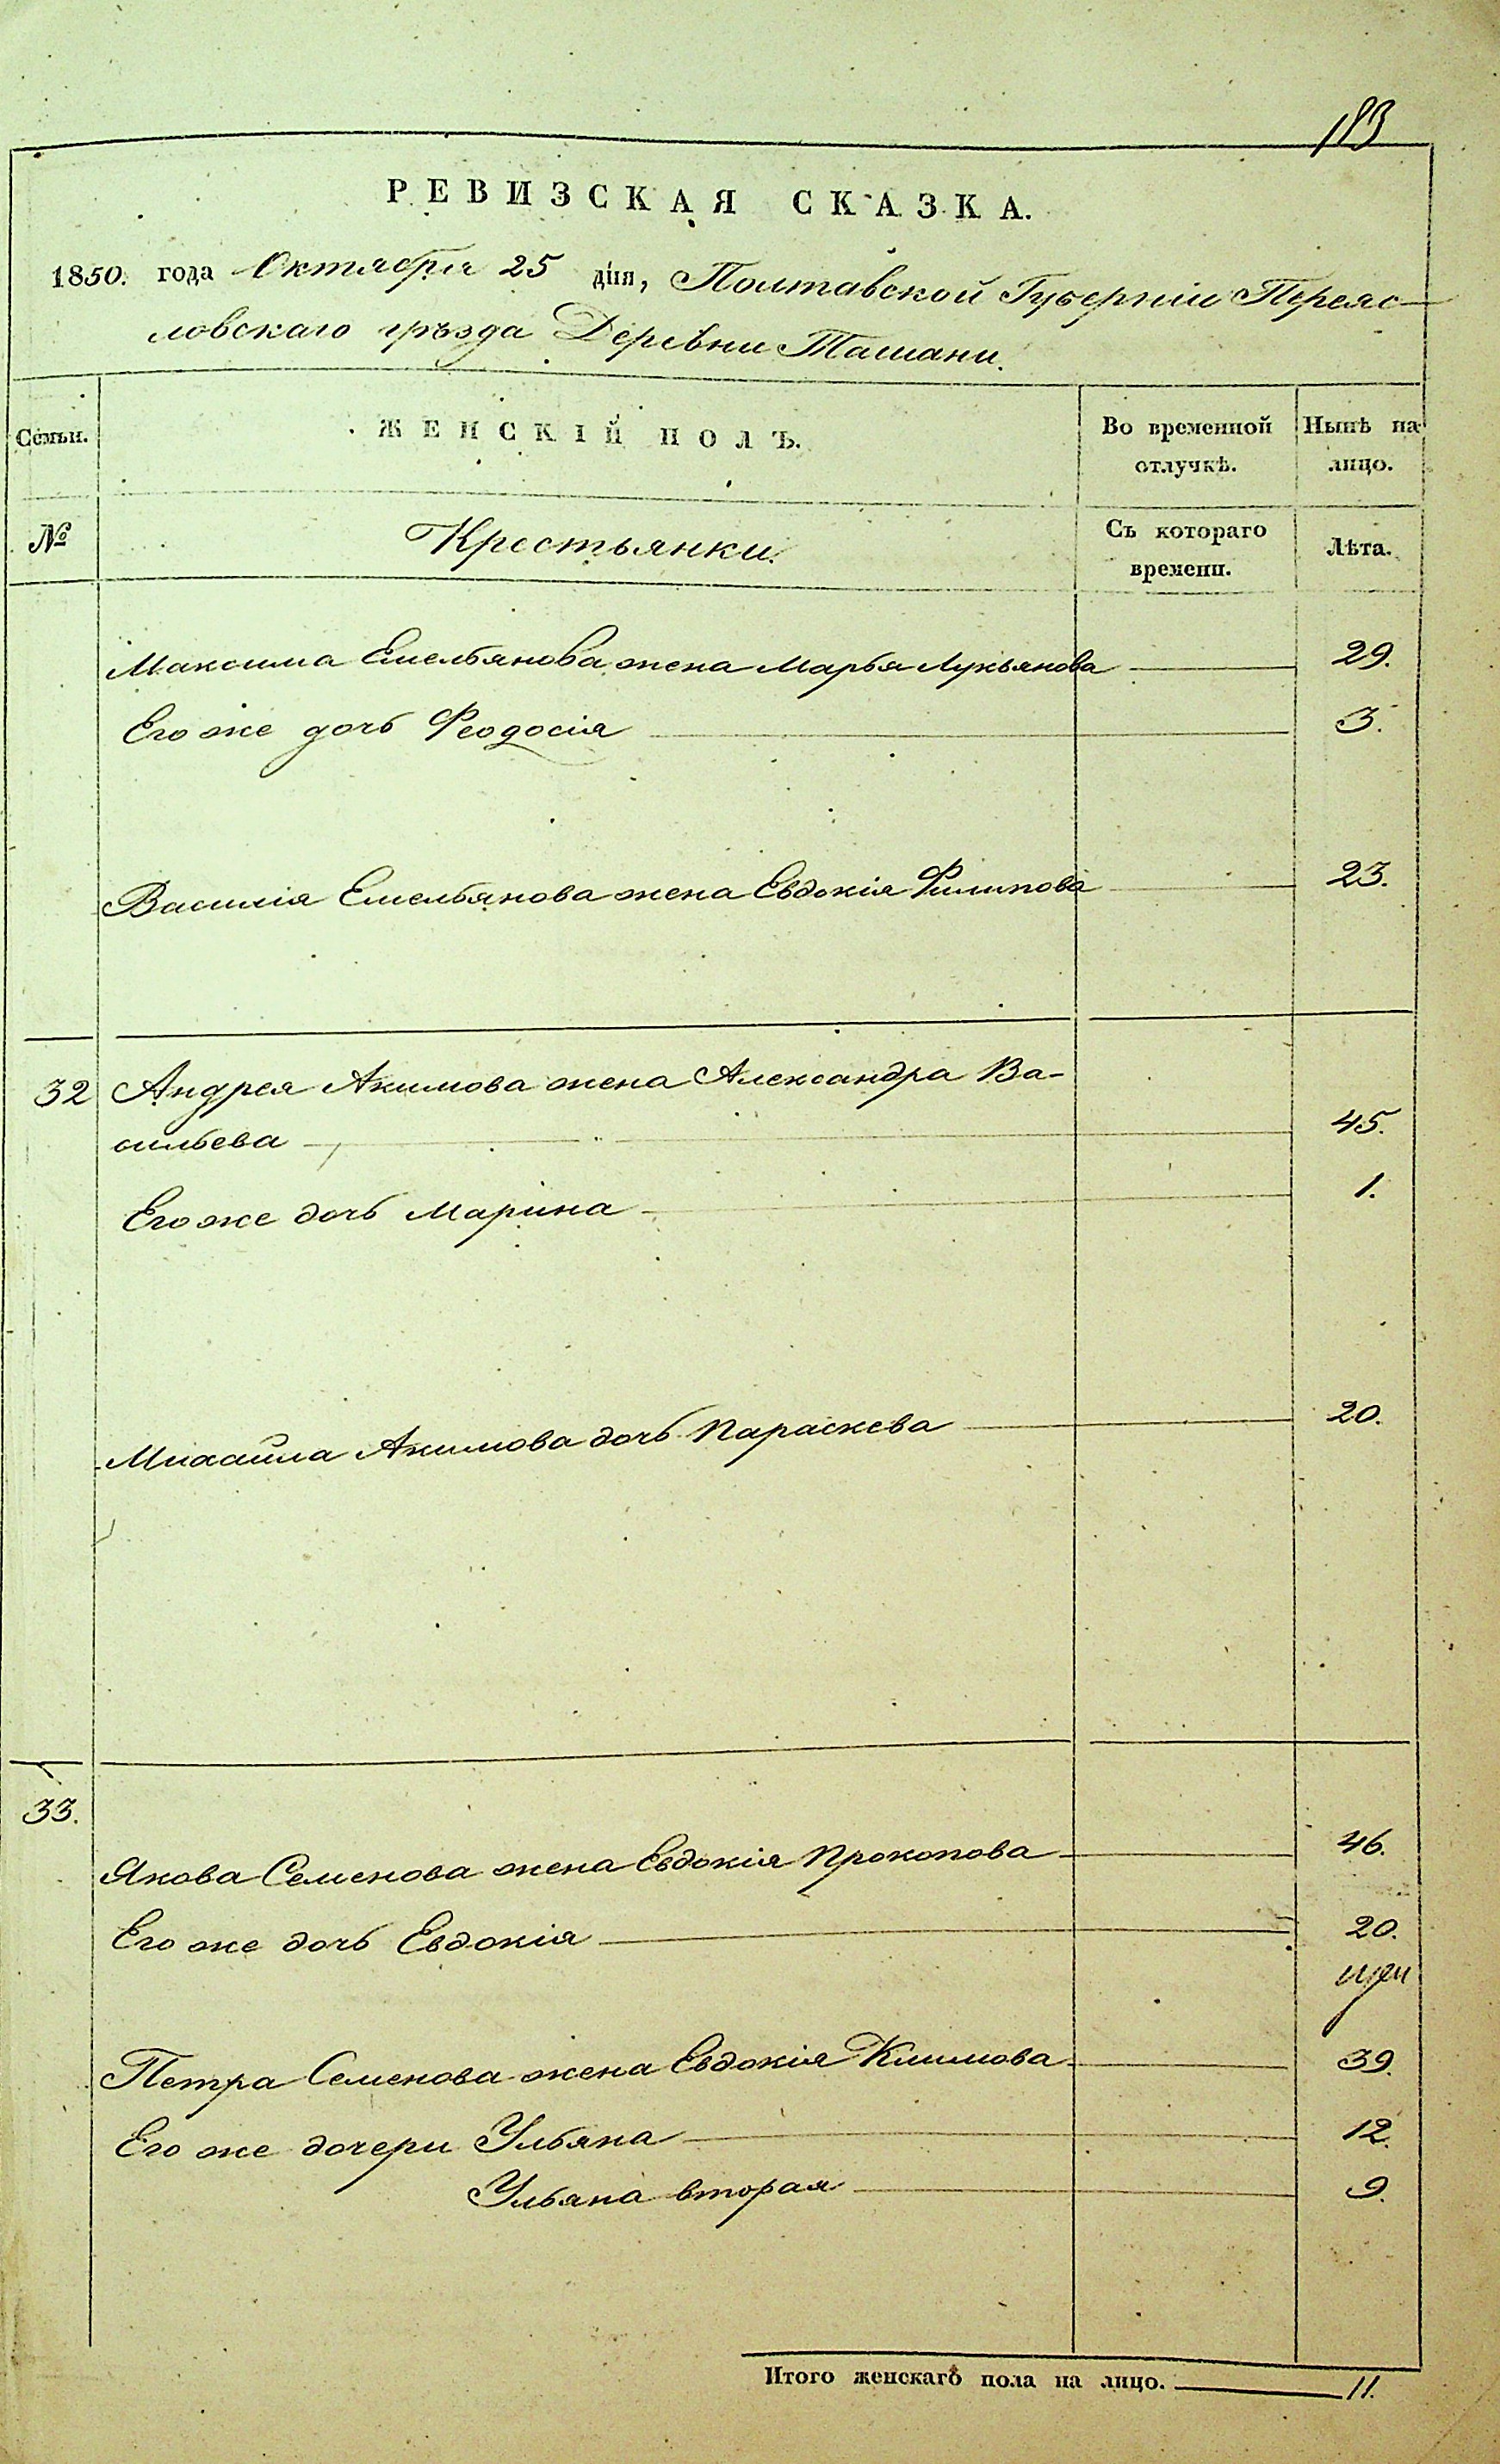 183
РЕВИЗСКАЯ СКАЗКА.
1850. года Октября 25 дня, Полтавской Губерніи Переяс-
ловскаго уѣзда Деревни Ташани.
Семьи. ЖЕНСКІЙ ПОЛЪ. Во временной отлучкѣ. Нынѣ на лицо.
№ Крестьянки. Съ котораго времени. Лѣта.
Максима Емельянова жена Марья Лукьянова 29.
Его же дочь Феодосія 3.
Василія Емельянова жена Евдокія Филипова 23.
32 Андрея Акимова жена Александра Ва-
сильева 45.
Его же дочь Марина 1.
Михайла Акимова дочь Параскева 20.
33.
Якова Семенова жена Евдокія Прокопова 46.
Его же дочь Евдокія 20.
Петра Семенова жена Евдокія Климова 39.
Его же дочери Ульяна 12.
Ульяна вторая 9.
Итого женскаго пола на лицо. 11.